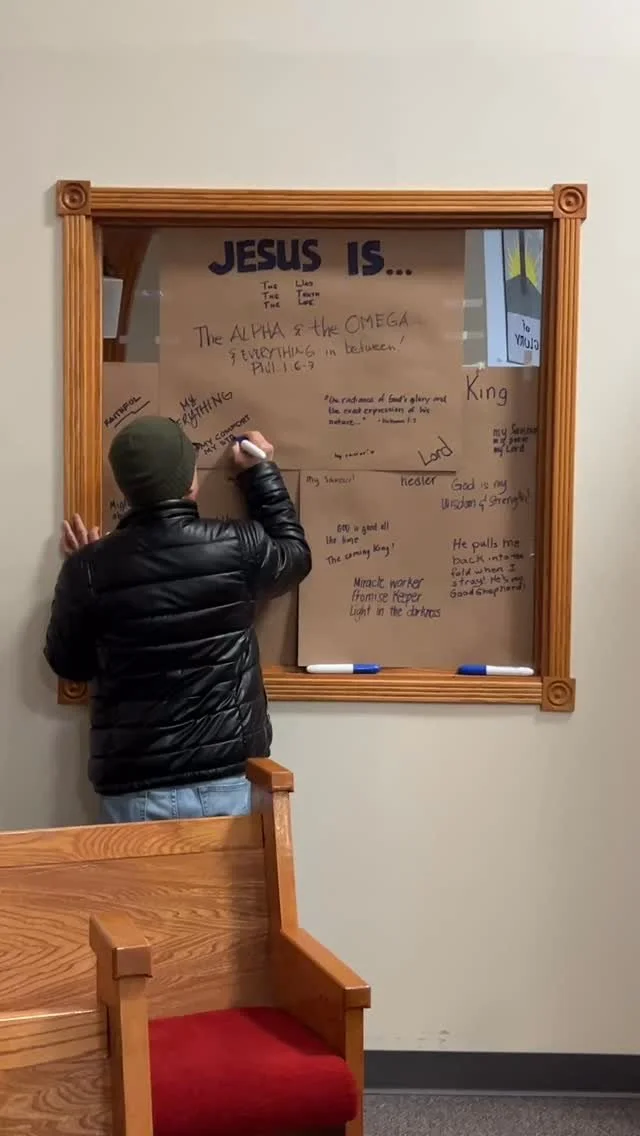 JESUS IS...
THE WAY
THE TRUTH
THE LIFE
The ALPHA & the OMEGA
& EVERYTHING in between!
Phil 1:6-7
FAITHFUL
MY
MY COMFORT
MY
"the radiance of God's glory and
the exact expression of his
nature..."
Lord
King
my Savior
my
my Lord
of
GLORY
my Savior!
healer
God is my
Wisdom & Strength!
GOD is good all
the time
The coming King!
Miracle worker
Promise Keeper
Light in the darkness
He pulls me
back into the
fold when I
stray! He's my
Good Shepherd!